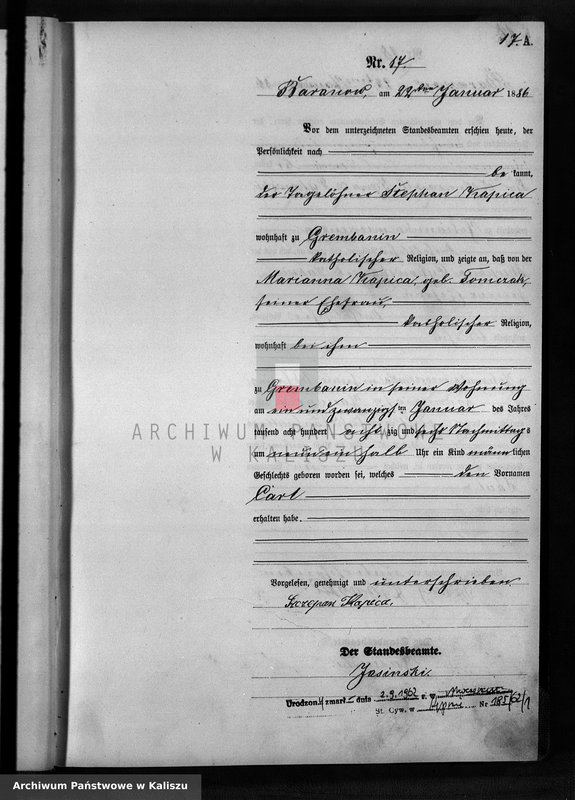 17. A.
Nr. 17.
Baranow, am 22ten Januar 1886
Vor dem unterzeichneten Standesbeamten erschien heute, der
Persönlichkeit nach
be kannt,
der Tagelöhner Stephan Kapica
wohnhaft zu Grembanin
katholischer Religion, und zeigte an, daß von der
Marianna Kapica, geb. Tomczak,
seiner Ehefrau,
katholischer Religion,
wohnhaft bei ihm
zu Grembanin in seiner Wohnung
am ein und zwanzigsten Januar des Jahres
tausend acht hundert achtzig und sechs Nachmittags
um neun ein halb Uhr ein Kind männlichen
Geschlechts geboren worden sei, welches den Vornamen
Carl
erhalten habe.
Vorgelesen, genehmigt und unterschrieben
Szczepan Kapica.
Der Standesbeamte.
Jasinski.
Urodzon. zmarł dnia 2.9.1962 r. w
St. Cyw. w Nr 181/62/1
ARCHIWUM PAŃSTWOWE
W KALISZU
Archiwum Państwowe w Kaliszu